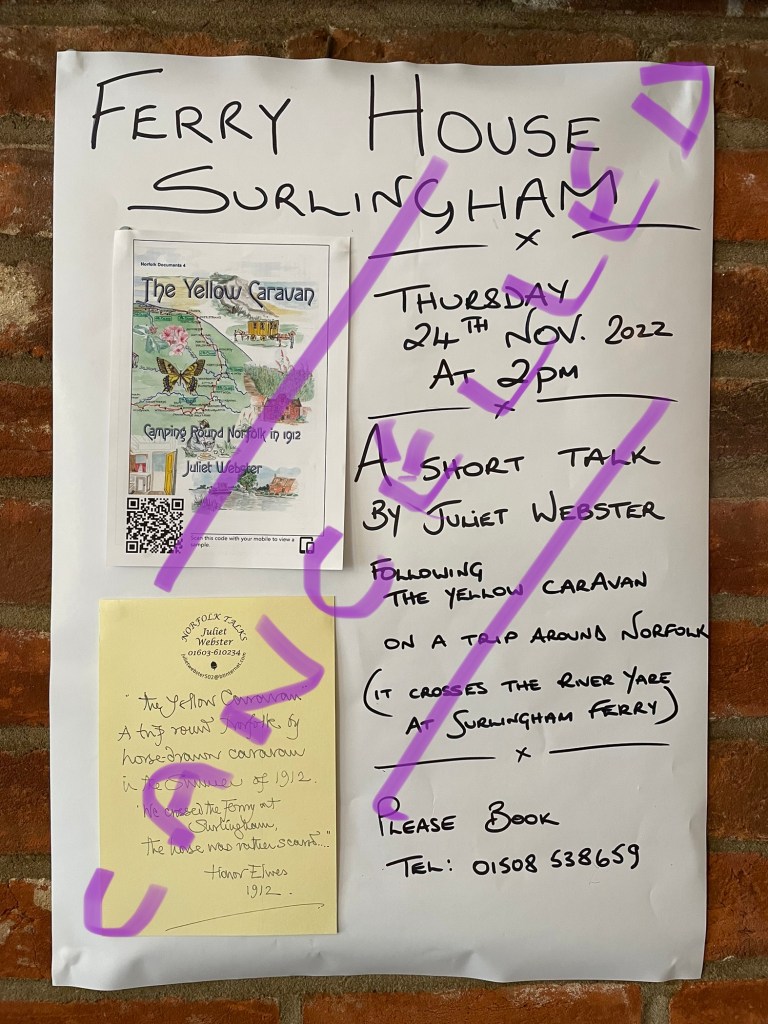 FERRY HOUSE
SURLINGHAM
x
THURSDAY
24TH NOV. 2022
AT 2PM
x
A SHORT TALK
BY JULIET WEBSTER
FOLLOWING
THE YELLOW CARAVAN
ON A TRIP AROUND NORFOLK
(IT CROSSES THE RIVER YARE
AT SURLINGHAM FERRY)
x
PLEASE BOOK
TEL: 01508 538659
Norfolk Documents 4
The Yellow Caravan
Camping Round Norfolk in 1912
Juliet Webster
Scan this code with your mobile to view a
sample.
NORFOLK TALKS
Juliet
Webster
01603-610234
"the Yellow Caravan
A trip round Norfolk by
horse-drawn caravan
in the Summer of 1912.
"We crossed the Ferry at
Surlingham,
the horse was rather scared..."
Honor Elwes
1912.
CANCELLED